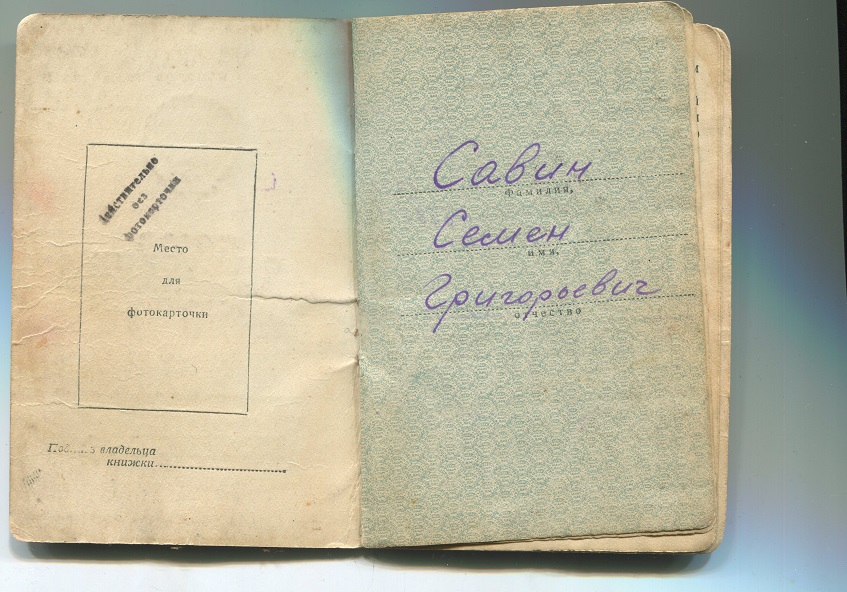 Действительно
без
фотокарточки
Место
для
фотокарточки
Подпись владельца
книжки
Савин
фамилия,
Семен
имя,
Григорьевич
отчество